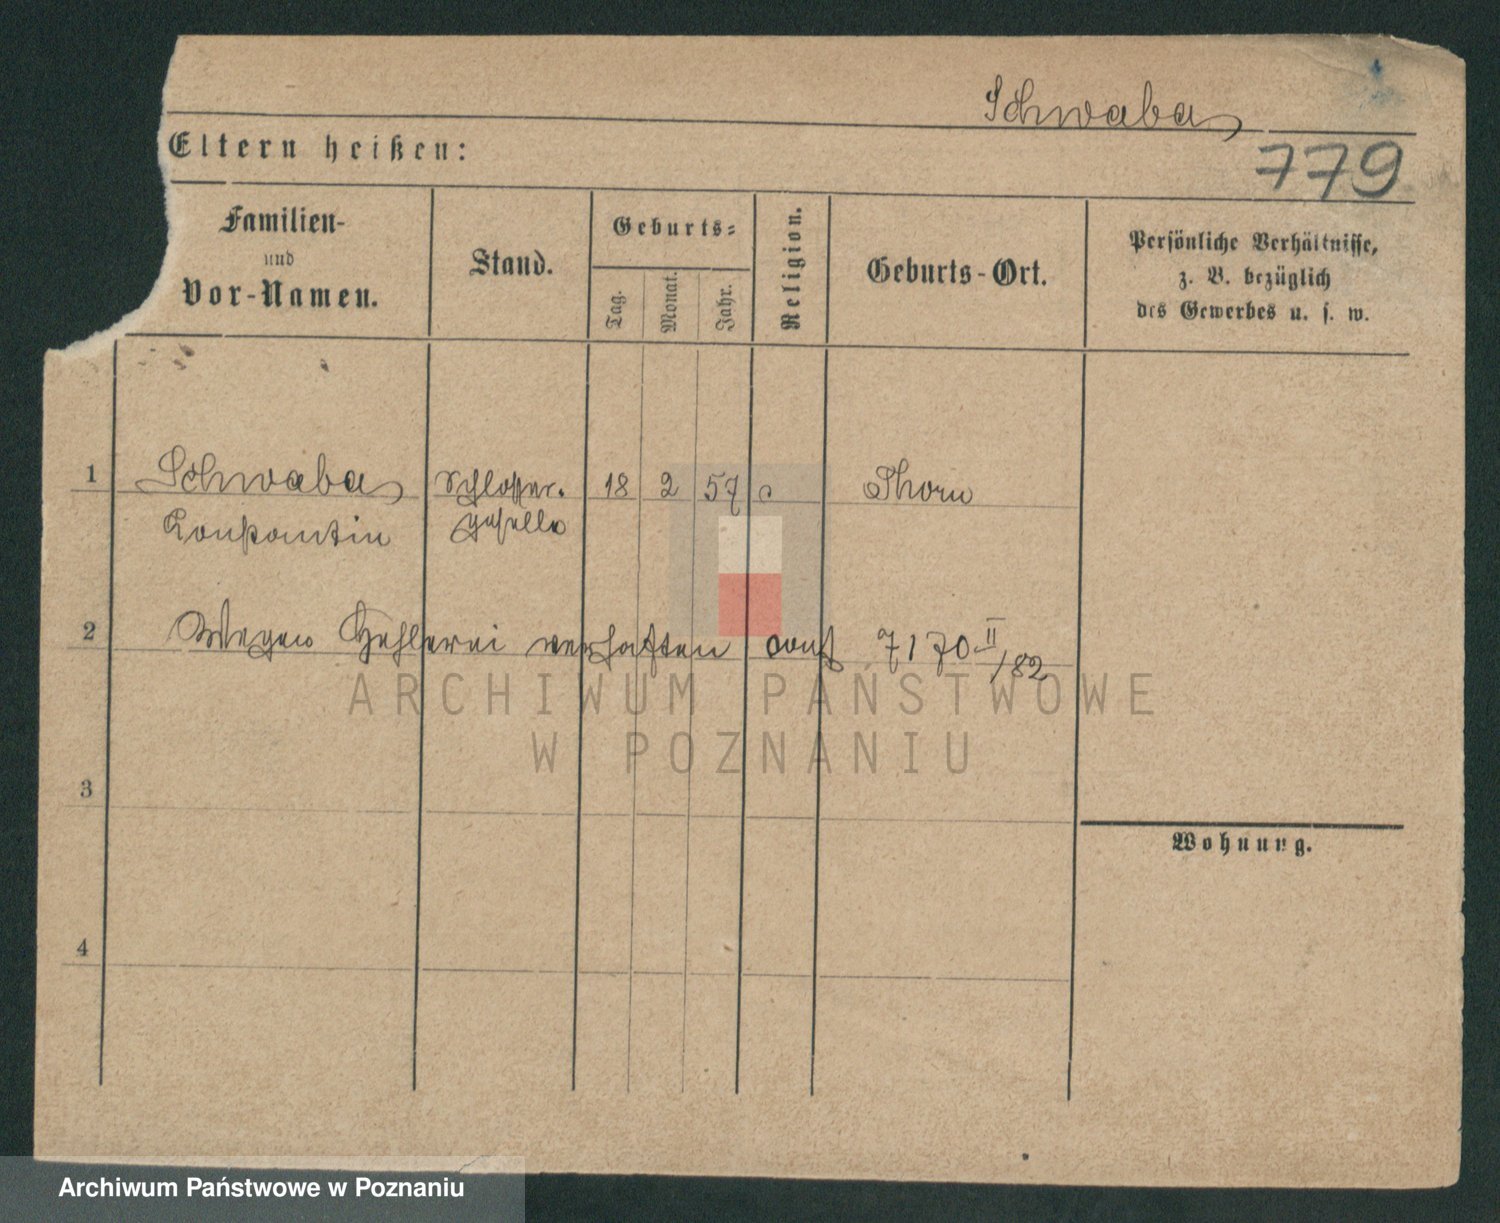 Schwaba
779
Eltern heißen:
Familien-
und
Vor-Namen.
Stand.
Geburts-
Tag.
Monat.
Jahr.
Religion.
Geburts-Ort.
Persönliche Verhältnisse,
z. B. bezüglich
des Gewerbes u. s. w.
1 Schwaba Schlosser- 18 2 57 Thorn
Konstantin geselle
2 Wegen Hehlerei verhaften 7170 II/82
3
Wohnung.
4
ARCHIWUM PAŃSTWOWE
W POZNANIU
Archiwum Państwowe w Poznaniu